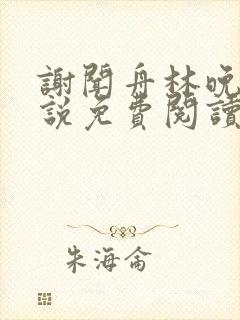 謝聞舟林晚
說免費閱讀
朱海侖